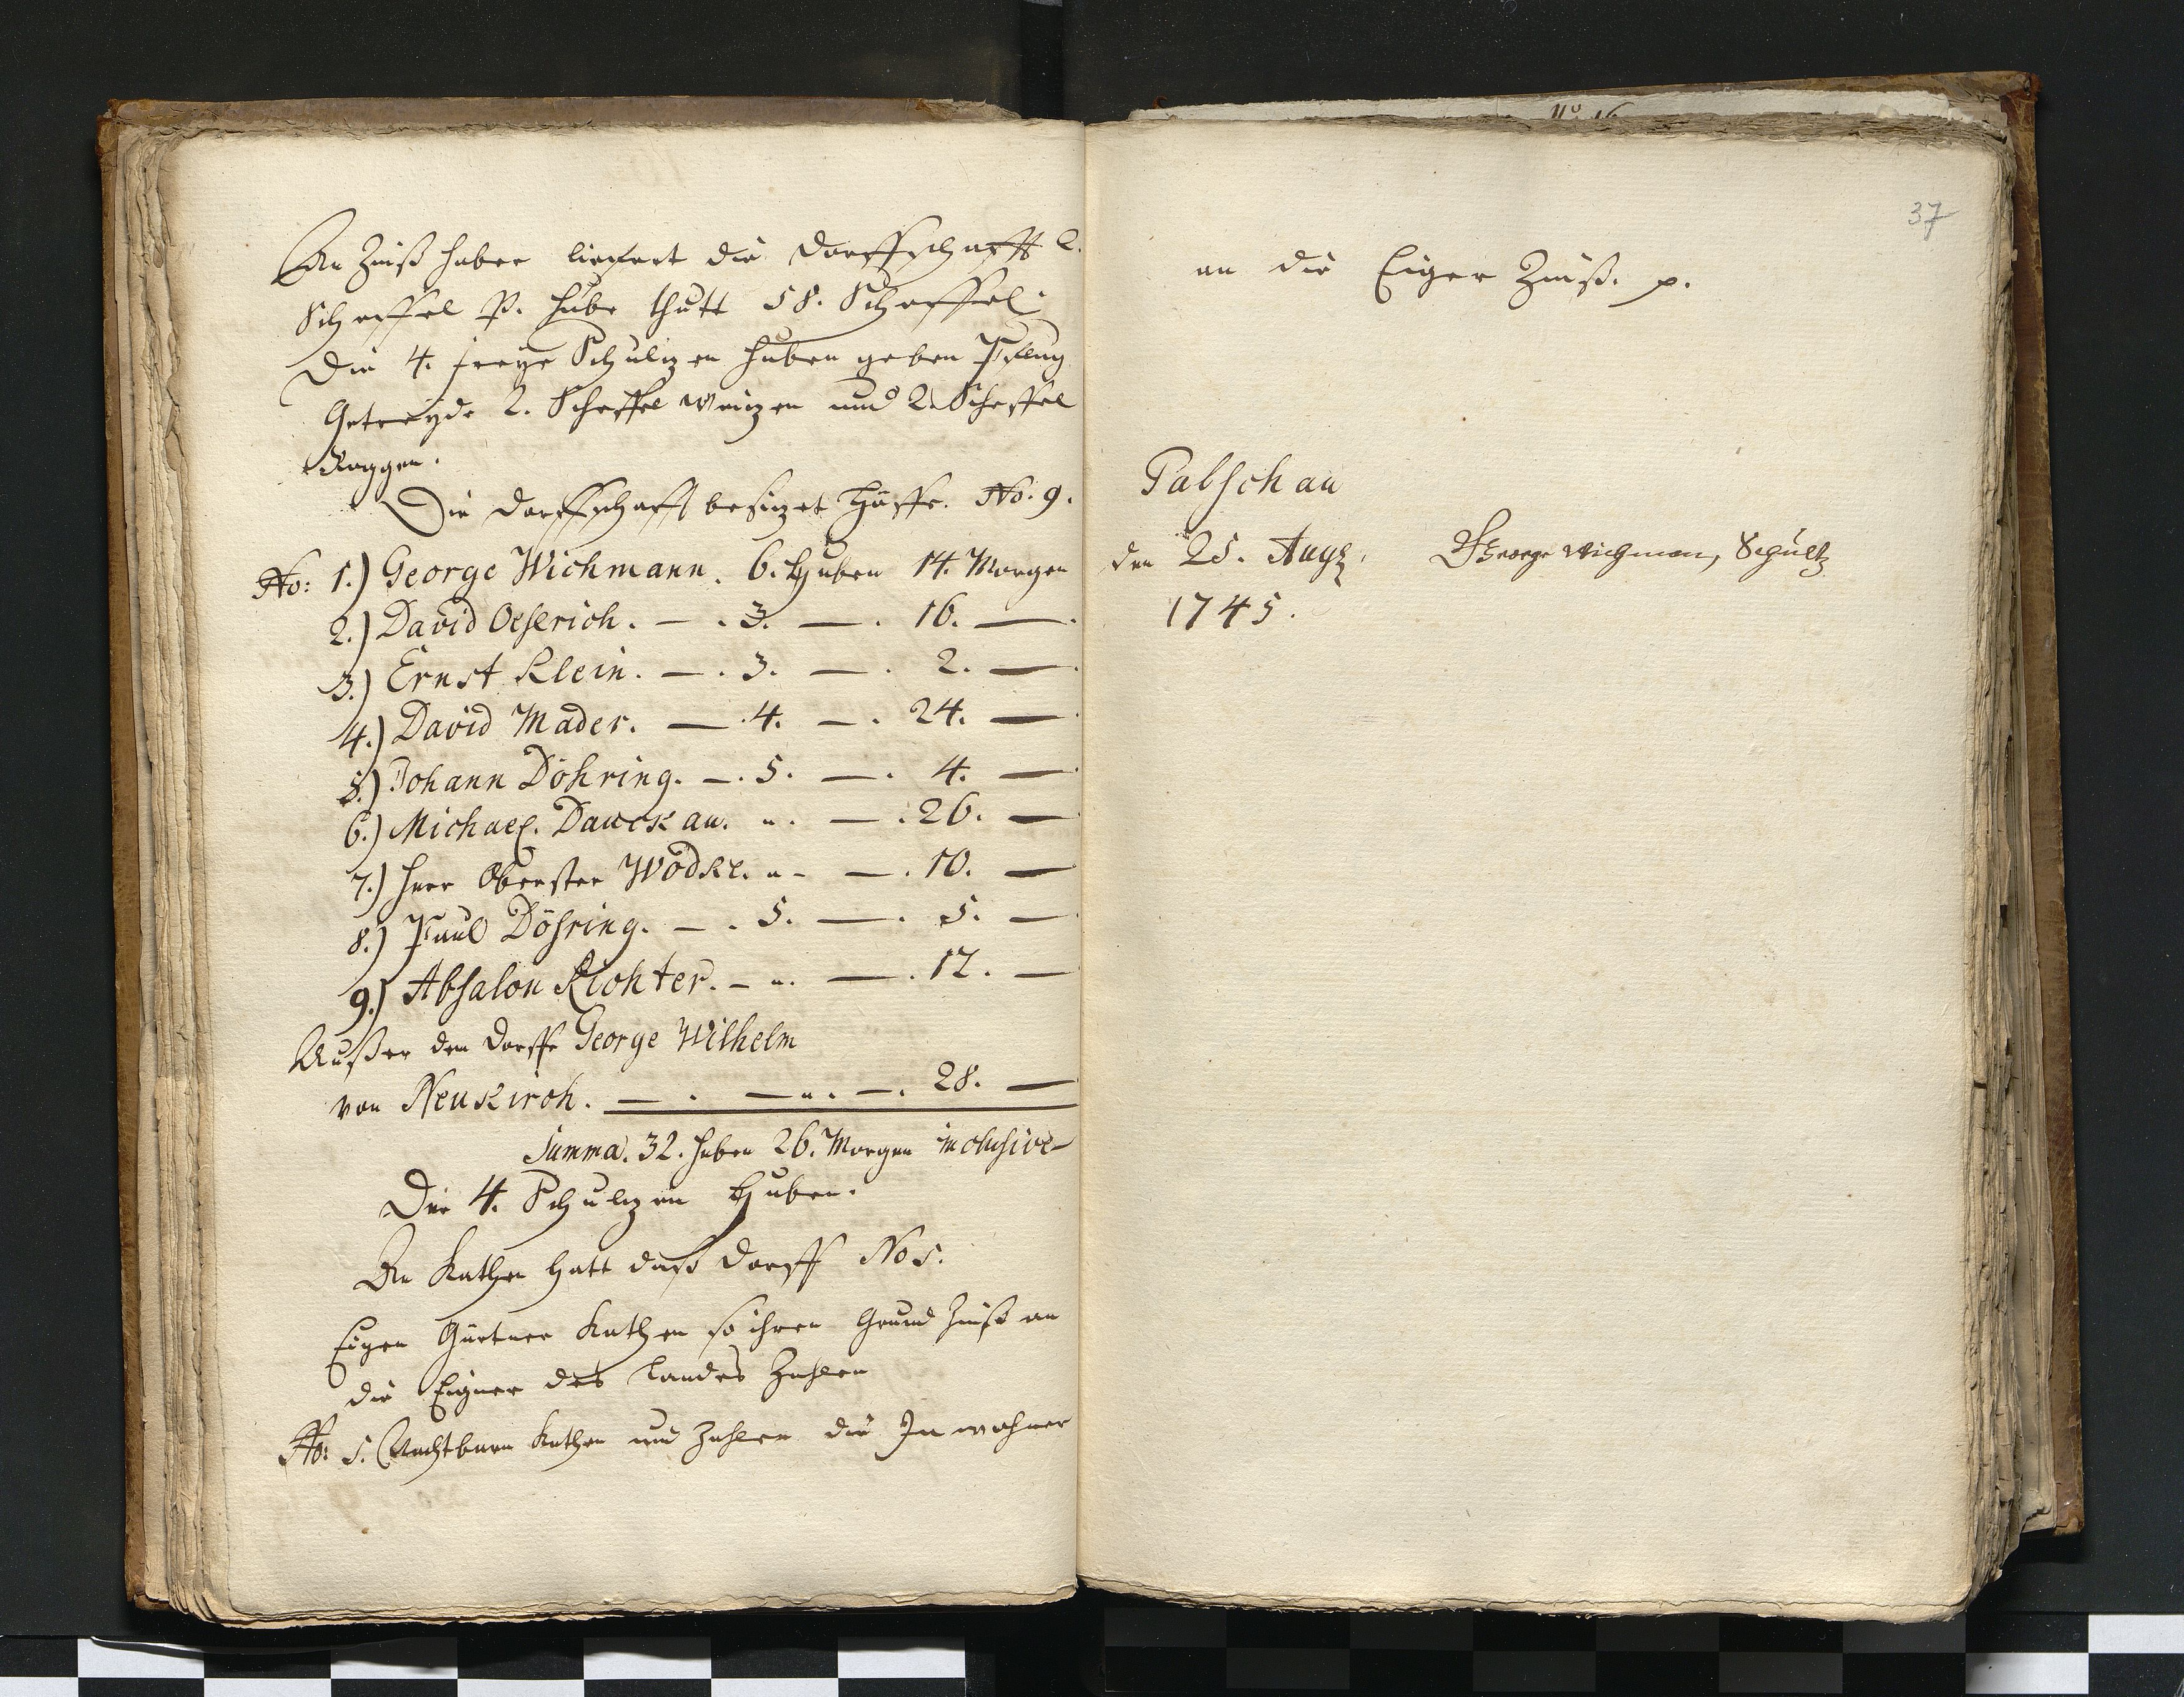 An Zinß haber liefert die Dorffschafft 2.
Scheffel P. Hube thutt 58. Scheffel.
Die 4. freye Schultzen Huben geben Pflug
Getreyde 2. Scheffel Weitzen und 2. Scheffel
Roggen.
Die Dorffschafft besitzet Höffe. No. 9.
No: 1.) George Wichmann. 6. Huben 14. Morgen
2.) David Oeserich. — . 3. — . 16. —
3.) Ernst Klein. — . 3. — . 2. —
4.) David Mader. — . 4. — . 24. —
5.) Johann Döhring. — . 5. — . 4. —
6.) Michael. Dauckau. „ . — . 26. —
7.) Herr Oberster Wödke. „ - — . 10. —
8.) Paul Döhring. — . 5. — . 5. —
9.) Absalon Richter. - „ . — . 12. —
Außer den Dorffe George Wilhelm
von Neukirch. — . — „ . — . 28. —
Summa. 32. Huben 26. Morgen inclusive
Die 4. Schultzen Huben.
An Kathen hatt daß Dorff No 5.
Eigen Gärtner Kathen so ihren Grund Zinß an
die Eigner des Landes Zahlen
No: 5. Kathen und Zahlen die Inwohner
37
an die Eiger Zinß. p.
Palschau
den 25. Aug.
1745.
George Wichman, Schultz
No 16